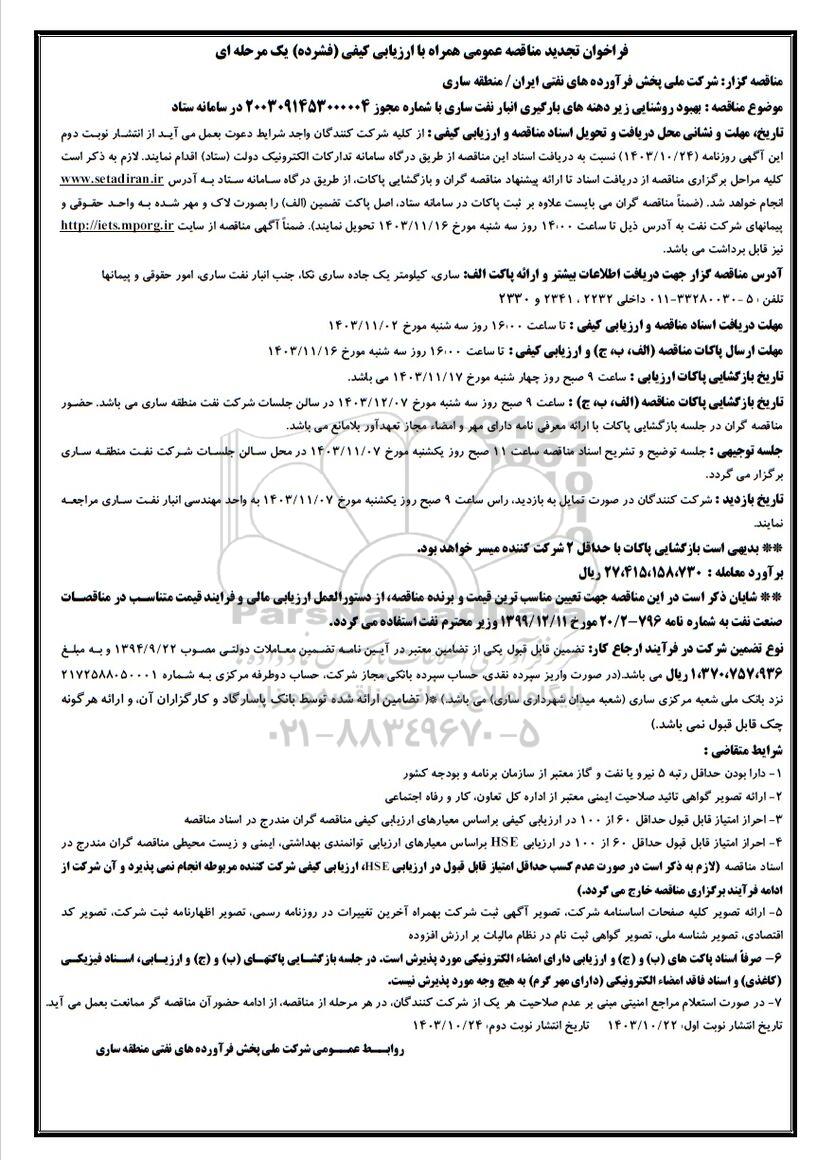 فراخوان تجدید مناقصه عمومی همراه با ارزیابی کیفی (فشرده) یک مرحله ای
مناقصه گزار: شرکت ملی پخش فرآورده های نفتی ایران/ منطقه ساری
موضوع مناقصه : بهبود روشنایی زیر دهنه های بارگیری انبار نفت ساری با شماره مجوز ۲۰۰۳۰۹۱۴۵۳۰۰۰۰۰۴ در سامانه ستاد
تاریخ، مهلت و نشانی محل دریافت و تحویل اسناد مناقصه و ارزیابی کیفی : از کلیه شرکت کنندگان واجد شرایط دعوت بعمل می آید از انتشار نوبت دوم
این آگهی روزنامه (۱۴۰۳/۱۰/۲۴) نسبت به دریافت اسناد این مناقصه از طریق درگاه سامانه تدارکات الکترونیک دولت (ستاد) اقدام نمایند. لازم به ذکر است
کلیه مراحل برگزاری مناقصه از دریافت اسناد تا ارائه پیشنهاد مناقصه گران و بازگشایی پاکات، از طریق درگاه سامانه ستاد به آدرس www.setadiran.ir
انجام خواهد شد. (ضمناً مناقصه گران می بایست علاوه بر ثبت پاکات در سامانه ستاد، اصل پاکت تضمین (الف) را بصورت لاک و مهر شده به واحد حقوقی و
پیمانهای شرکت نفت به آدرس ذیل تا ساعت ۱۴:۰۰ روز سه شنبه مورخ ۱۴۰۳/۱۱/۱۶ تحویل نمایند). ضمناً آگهی مناقصه از سایت http://iets.mporg.ir
نیز قابل برداشت می باشد.
آدرس مناقصه گزار جهت دریافت اطلاعات بیشتر و ارائه پاکت الف: ساری، کیلومتر یک جاده ساری نکا، جنب انبار نفت ساری، امور حقوقی و پیمانها
تلفن : ۵ -۳۳۲۸۰۰۳۰-۰۱۱ داخلی ۲۲۳۲ ، ۲۳۴۱ و ۲۳۳۰
مهلت دریافت اسناد مناقصه و ارزیابی کیفی : تا ساعت ۱۶:۰۰ روز سه شنبه مورخ ۱۴۰۳/۱۱/۰۲
مهلت ارسال پاکات مناقصه (الف، ب، ج) و ارزیابی کیفی : تا ساعت ۱۶:۰۰ روز سه شنبه مورخ ۱۴۰۳/۱۱/۱۶
تاریخ بازگشایی پاکات ارزیابی : ساعت ۹ صبح روز چهار شنبه مورخ ۱۴۰۳/۱۱/۱۷ می باشد.
تاریخ بازگشایی پاکات مناقصه (الف، ب، ج) : ساعت ۹ صبح روز سه شنبه مورخ ۱۴۰۳/۱۲/۰۷ در سالن جلسات شرکت نفت منطقه ساری می باشد. حضور
مناقصه گران در جلسه بازگشایی پاکات با ارائه معرفی نامه دارای مهر و امضاء مجاز تعهدآور بلامانع می باشد.
جلسه توجیهی : جلسه توضیح و تشریح اسناد مناقصه ساعت ۱۱ صبح روز یکشنبه مورخ ۱۴۰۳/۱۱/۰۷ در محل سالن جلسات شرکت نفت منطقه ساری
برگزار می گردد.
تاریخ بازدید : شرکت کنندگان در صورت تمایل به بازدید، راس ساعت ۹ صبح روز یکشنبه مورخ ۱۴۰۳/۱۱/۰۷ به واحد مهندسی انبار نفت ساری مراجعه
نمایند.
** بدیهی است بازگشایی پاکات با حداقل ۲ شرکت کننده میسر خواهد بود.
برآورد معامله : ۲۷،۴۱۵،۱۵۸،۷۳۰ ریال
** شایان ذکر است در این مناقصه جهت تعیین مناسب ترین قیمت و برنده مناقصه، از دستورالعمل ارزیابی مالی و فرایند قیمت متناسب در مناقصات
صنعت نفت به شماره نامه ۷۹۶-۲۰/۲ مورخ ۱۳۹۹/۱۲/۱۱ وزیر محترم نفت استفاده می گردد.
نوع تضمین شرکت در فرآیند ارجاع کار: تضمین قابل قبول یکی از تضامین معتبر در آیین نامه تضمین معاملات دولتی مصوب ۱۳۹۴/۹/۲۲ و به مبلغ
۱،۳۷۰،۷۵۷،۹۳۶ ریال می باشد.(در صورت واریز سپرده نقدی، حساب سپرده بانکی مجاز شرکت، حساب دوطرفه مرکزی به شماره ۲۱۷۲۵۸۸۰۵۰۰۰۱
نزد بانک ملی شعبه مرکزی ساری (شعبه میدان شهرداری ساری) می باشد.) *( تضامین ارائه شده توسط بانک پاسارگاد و کارگزاران آن، و ارائه هرگونه
چک قابل قبول نمی باشد.)
شرایط متقاضی :
۱- دارا بودن حداقل رتبه ۵ نیرو یا نفت و گاز معتبر از سازمان برنامه و بودجه کشور
۲- ارائه تصویر گواهی تائید صلاحیت ایمنی معتبر از اداره کل تعاون، کار و رفاه اجتماعی
۳- احراز امتیاز قابل قبول حداقل ۶۰ از ۱۰۰ در ارزیابی کیفی براساس معیارهای ارزیابی کیفی مناقصه گران مندرج در اسناد مناقصه
۴- احراز امتیاز قابل قبول حداقل ۶۰ از ۱۰۰ در ارزیابی HSE براساس معیارهای ارزیابی توانمندی بهداشتی، ایمنی و زیست محیطی مناقصه گران مندرج در
اسناد مناقصه (لازم به ذکر است در صورت عدم کسب حداقل امتیاز قابل قبول در ارزیابی HSE، ارزیابی کیفی شرکت کننده مربوطه انجام نمی پذیرد و آن شرکت از
ادامه فرآیند برگزاری مناقصه خارج می گردد.)
۵- ارائه تصویر کلیه صفحات اساسنامه شرکت، تصویر آگهی ثبت شرکت بهمراه آخرین تغییرات در روزنامه رسمی، تصویر اظهارنامه ثبت شرکت، تصویر کد
اقتصادی، تصویر شناسه ملی، تصویر گواهی ثبت نام در نظام مالیات بر ارزش افزوده
۶- صرفاً اسناد پاکت های (ب) و (ج) و ارزیابی دارای امضاء الکترونیکی مورد پذیرش است. در جلسه بازگشایی پاکتهای (ب) و (ج) و ارزیابی، اسناد فیزیکی
(کاغذی) و اسناد فاقد امضاء الکترونیکی (دارای مهر گرم) به هیچ وجه مورد پذیرش نیست.
۷- در صورت استعلام مراجع امنیتی مبنی بر عدم صلاحیت هر یک از شرکت کنندگان، در هر مرحله از مناقصه، از ادامه حضورآن مناقصه گر ممانعت بعمل می آید.
تاریخ انتشار نوبت اول: ۱۴۰۳/۱۰/۲۲ تاریخ انتشار نوبت دوم: ۱۴۰۳/۱۰/۲۴
روابط عمومی شرکت ملی پخش فرآورده های نفتی منطقه ساری
ParsNamadData
۰۲۱-۸۸۳۴۹۶۷۰-۵